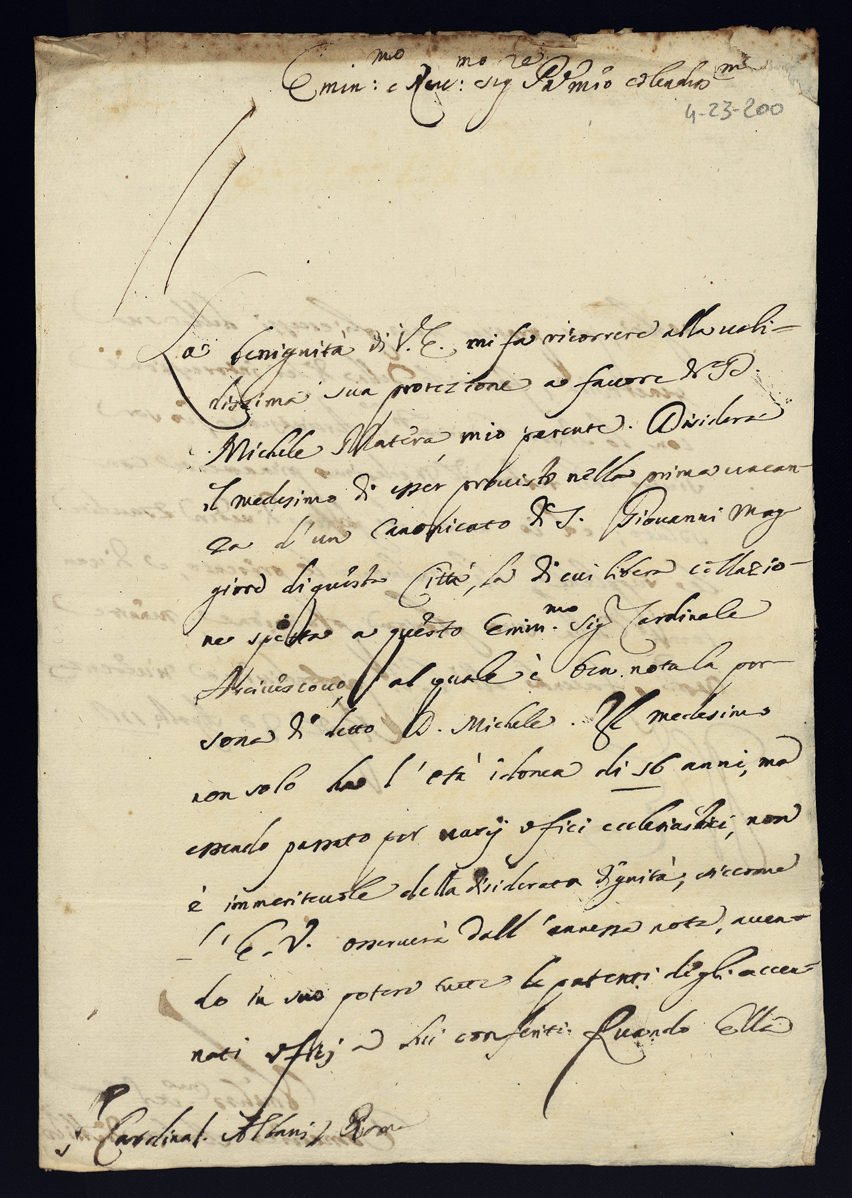 Emin:mo e Reu:mo Sig.re P̄rōn mio colendis.mo
4-23-200
La benignità di V.E. mi fa ricorrere alla uali-
dissima sua protezione a fauore di D.
Michele Matera mio parente. Disidera
il medesimo di esser prouisto nella prima uacan-
za d'un Canonicato di S. Giovanni Mag
giore di questa Città, la di cui libera collazio-
ne spetta a questo Emin.mo Sig.r Cardinale
Arciuescouo, al quale è ben nota la per-
sona di detto D. Michele. Il medesimo
non solo ha l'età idonea di 56 anni, ma
essendo passato per uarij ofici ecclesiastici, non
è immeriteuole della disiderata dignità, siccome
l'E.V. osseruerà dall'annessa nota, auen-
do in suo potere tutte le patenti degli accen-
nati ofizj a lui conferiti. Quando Ella
S.r Cardinal. Albani, Roma